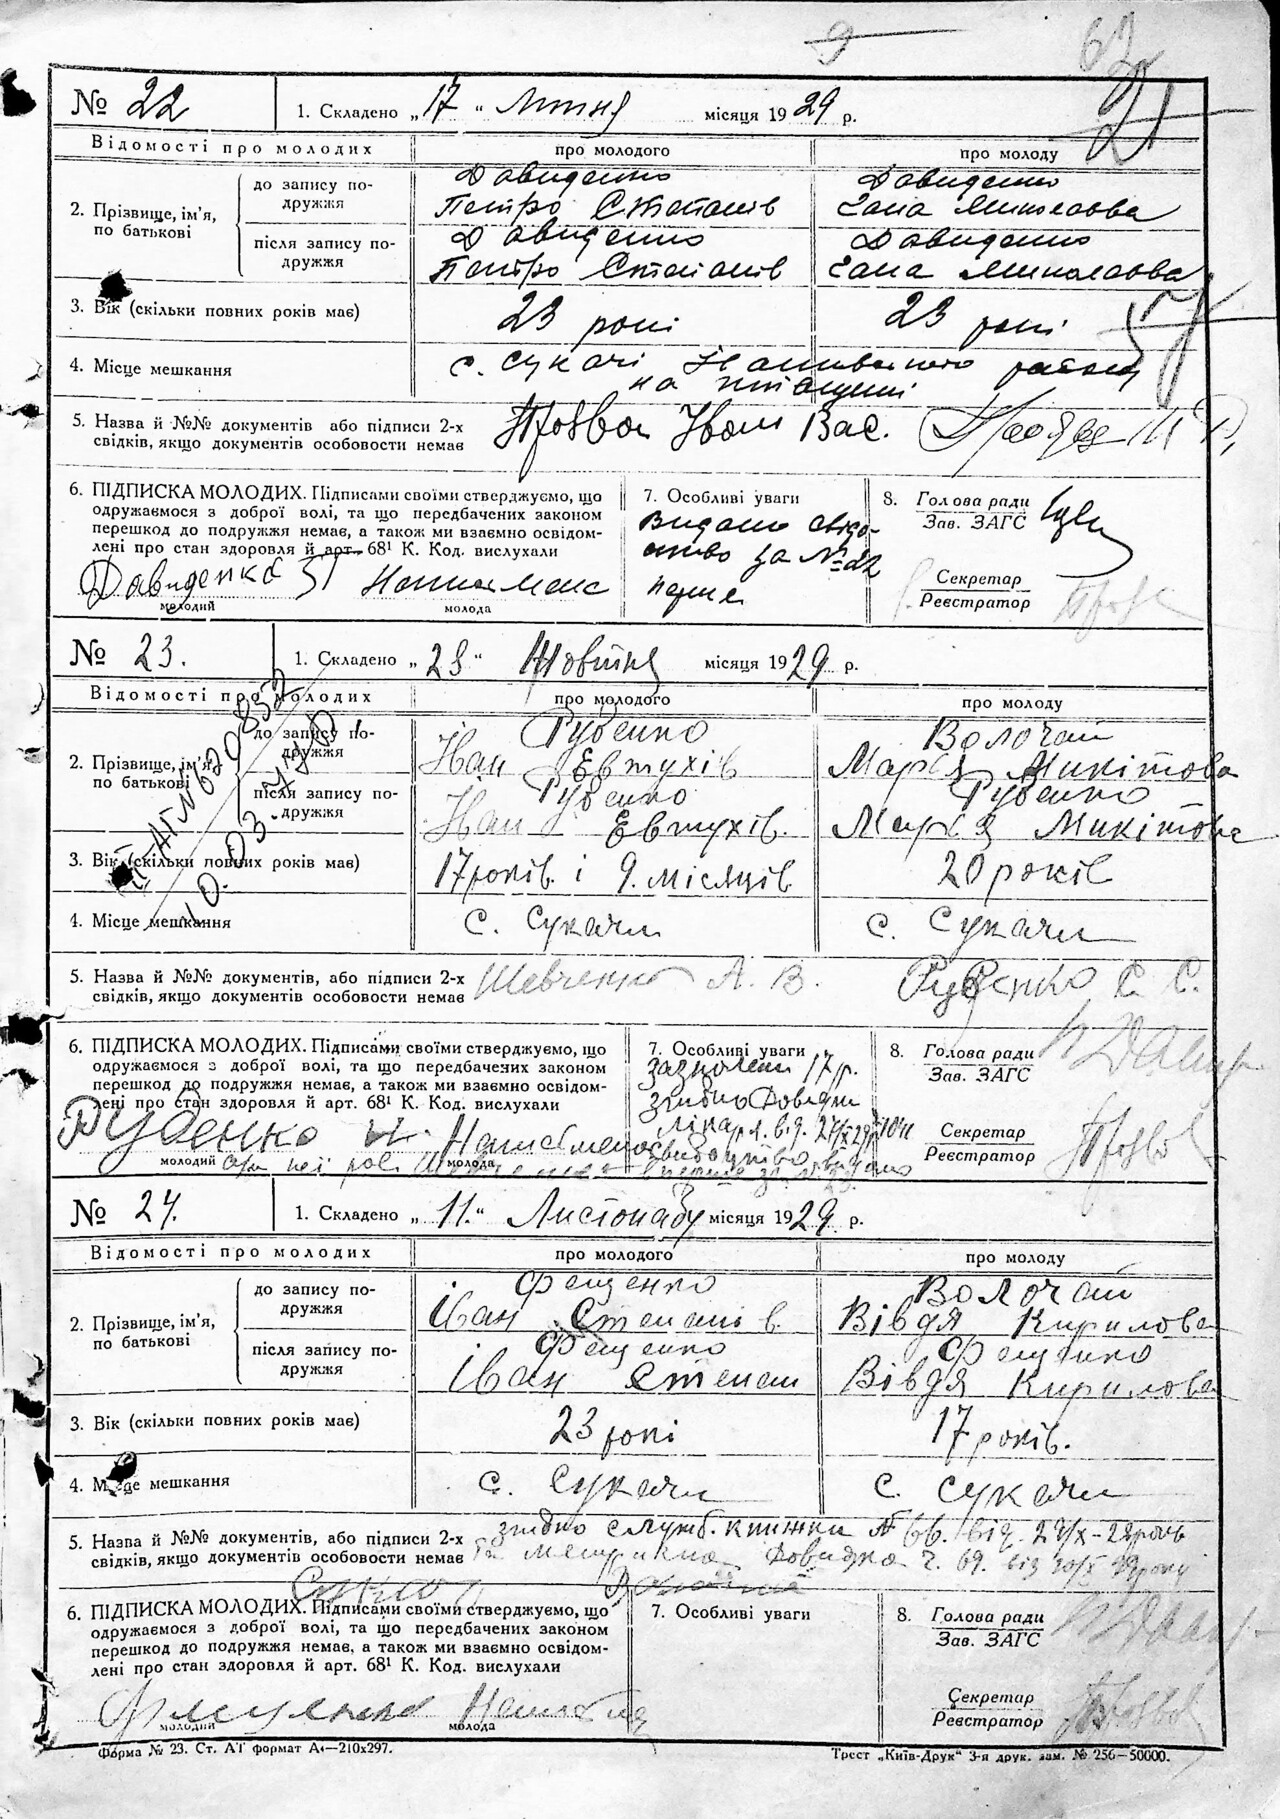 9
№ 22
1. Складено „17“ Липня місяця 1929 р.
Відомості про молодих
про молодого
про молоду
2. Прізвище, ім'я, по батькові
до запису подружжя
Давиденко
Петро Степанів
Давиденко
Миколаєва
після запису подружжя
Давиденко
Петро Степанів
Давиденко
Миколаєва
3. Вік (скільки повних років має)
23 роки
23 роки
4. Місце мешкання
с. Сукачі
району
5. Назва й №№ документів або підписи 2-х
свідків, якщо документів особовости немає
Іван Вас.
6. ПІДПИСКА МОЛОДИХ. Підписами своїми стверджуємо, що
одружаємося з доброї волі, та що передбачених законом
перешкод до подружжя немає, а також ми взаємно освідом-
лені про стан здоровля й арт. 68¹ К. Код. вислухали
Давиденко
молодий
молода
7. Особливі уваги
Видано свідо-
цтво за № 22
8. Голова ради
Зав. ЗАГС
Секретар
Реєстратор
№ 23.
1. Складено „23“ Жовтня місяця 1929 р.
Відомості про молодих
про молодого
про молоду
2. Прізвище, ім'я, по батькові
до запису подружжя
Рубенко
Іван Евтухів
Волочай
Мар'я Микітова
після запису подружжя
Рубенко
Іван Евтухів.
Рубенко
Мар'я Микітова
3. Вік (скільки повних років має)
17 років і 9. місяців
20 років
4. Місце мешкання
с. Сукачи
с. Сукачи
5. Назва й №№ документів, або підписи 2-х
свідків, якщо документів особовости немає
Шевченко А. В.
Рубенко С. С.
6. ПІДПИСКА МОЛОДИХ. Підписами своїми стверджуємо, що
одружаємося з доброї волі, та що передбачених законом
перешкод до подружжя немає, а також ми взаємно освідом-
лені про стан здоровля й арт. 68¹ К. Код. вислухали
Рубенко И.
молодий
молода
7. Особливі уваги
17 р.
згідно довідки
лікаря від 27/X 29 р.
8. Голова ради
Зав. ЗАГС
Секретар
Реєстратор
№ 24.
1. Складено „11.“ Листопаду місяця 1929 р.
Відомості про молодих
про молодого
про молоду
2. Прізвище, ім'я, по батькові
до запису подружжя
Фещенко
Іван Степанів
Волочай
Вівдя Кирилова
після запису подружжя
Фещенко
Іван Степан
Фещенко
Вівдя Кирилова
3. Вік (скільки повних років має)
23 роки
17 років.
4. Місце мешкання
с. Сукачи
с. Сукачи
5. Назва й №№ документів, або підписи 2-х
свідків, якщо документів особовости немає
згідно служб. книжки № 66. від. 27/X-29 року
та довидка ч. 69. від 29 року
6. ПІДПИСКА МОЛОДИХ. Підписами своїми стверджуємо, що
одружаємося з доброї волі, та що передбачених законом
перешкод до подружжя немає, а також ми взаємно освідом-
лені про стан здоровля й арт. 68¹ К. Код. вислухали
Фещенко
молодий
молода
7. Особливі уваги
8. Голова ради
Зав. ЗАГС
Секретар
Реєстратор
Форма № 23. Ст. АГ формат А4—210х297.
Трест „Київ-Друк“ 3-я друк. зам. № 256—50000.